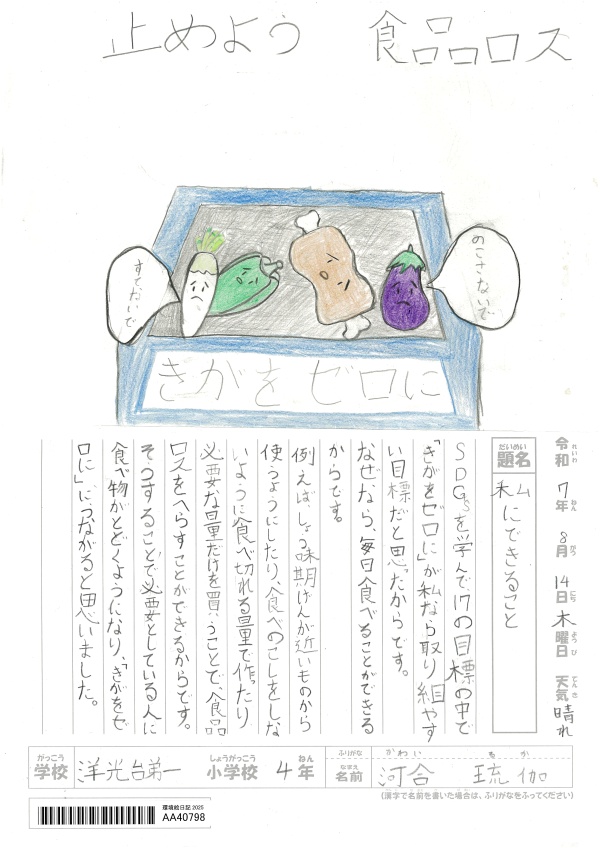 止めよう 食品ロス
すてないで
のこさないで
きがをゼロに
令和7年8月14日木曜日 天気晴れ
れいわ ねん がつ にち ようび てんき
だいめい
題名
私にできること
SDGsを学んで17の目標の中で
「きがをゼロに」が私なら取り組やす
い目標だと思ったからです。
なぜなら、毎日食べることができる
からです。
例えば、しょう味期げんが近いものから
使うようにしたり、食べのこしをしな
いように食べ切れる量で作ったり、
必要な量だけを買うことで、食品
ロスをへらすことができるからです。
そうすることで必要としている人に
食べ物がとどくようになり、「きがをゼ
ロに」につながると思いました。
がっこう しょうがっこう ねん ふりがな かわい るか
学校 洋光台第一 小学校 4年 なまえ 名前 河合 琉伽
(漢字で名前を書いた場合は、ふりがなをふってください)
環境絵日記 2025
AA40798